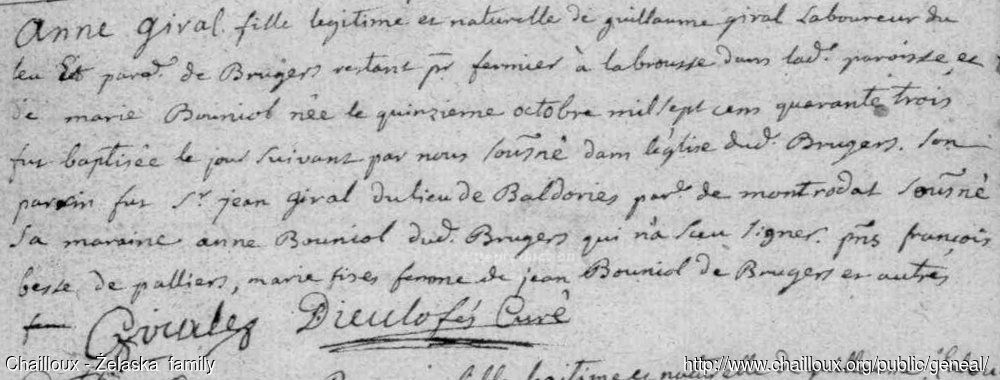 Anne Giral fille legitime et naturelle de guillaume giral Laboureur du
leu Et parsse. de Brugers restant pr fermier à labrousse dans lade. paroisse, et
de marie Bouniol née le quinzieme octobre mil sept cens quarante trois
fut baptisée le jour suivant par nous sousné dans l'église dud. Brugers. son
parrin fut Sr. jean giral du lieu de Baldories parse. de montrodat sousné
sa maraine anne Bouniol dud. Brugers qui n'a sceu signer. pns françois
besse de palliers, marie fises femme de jean Bouniol de Brugers et autres
Dieulofés Curé
legitime et naturelle
Chailloux - Żelaska family
http://www.chailloux.org/public/geneal/